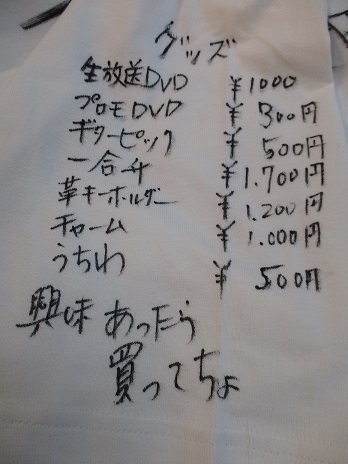 グッズ
生放送DVD ¥1000
プロモDVD ¥300円
ギターピック ¥500円
一合升 ¥1.700円
革キーホルダー ¥1.200円
チャーム ¥1.000円
うちわ ¥500円
興味あったら
買ってちょ